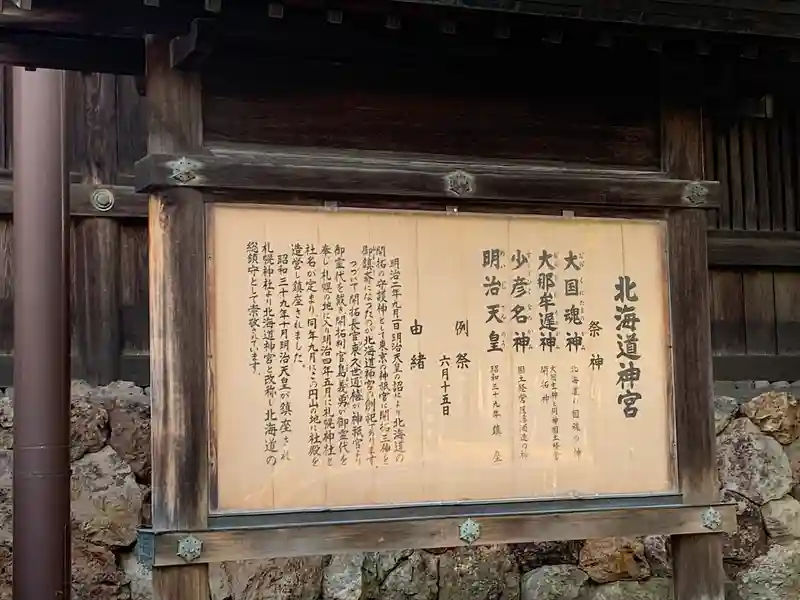 北海道神宮
祭神
大国魂神
北海道の国魂の神
大那牟遅神
大国主神と同神国土経営
開拓神
少彦名神
国土経営医薬酒造の神
明治天皇
昭和三十九年鎮座
例祭
六月十五日
由緒
明治二年九月一日明治天皇の詔により北海道の
開拓の守護神として東京の神祇官で開拓三神を
御鎮斎になったのが北海道神宮の創祀であります
つづいて開拓長官東久世通禧が神祇官より
御霊代を戴き開拓判官島義勇が御霊代を
奉じ札幌の地に入り明治四年五月に札幌神社と
社名が定まり同年九月にこの円山の地に社殿を
造営し鎮座されました。
昭和三十九年十月明治天皇が鎮座され
札幌神社より北海道神宮と改称し北海道の
総鎮守として崇敬されています。